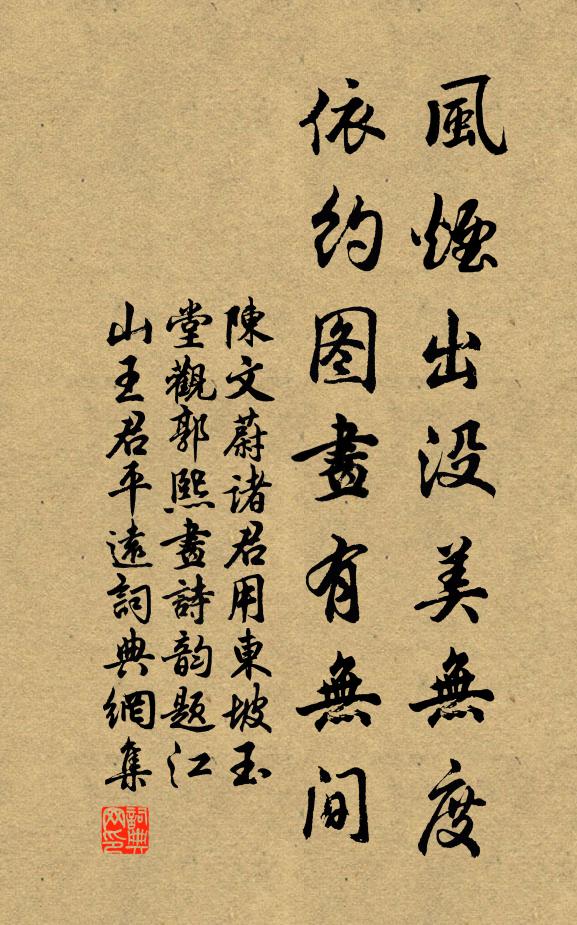 風煙出没美無度
依約图畫有無间
陳文蔚诸君用東坡玉
堂觀郭熙畫詩韵题江
山王君平遠詞典網集
詞典网印